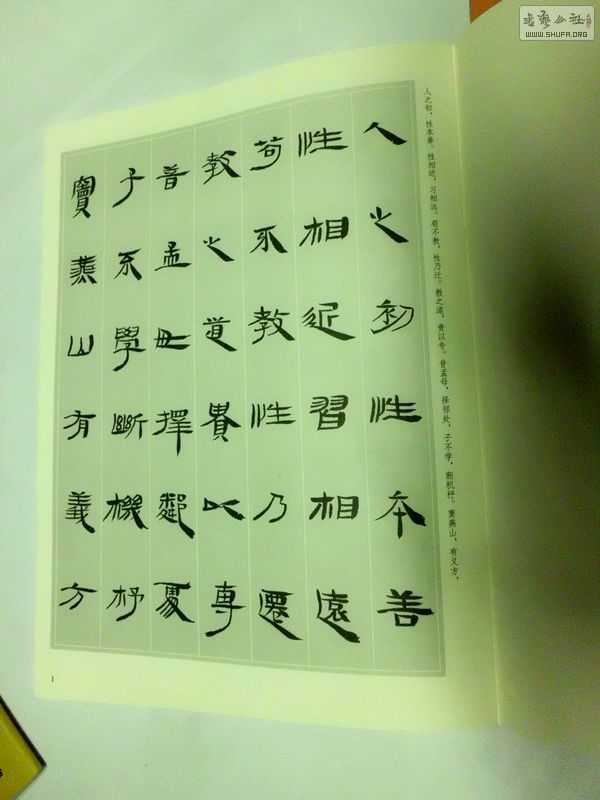 人之初性本善
性相近習相遠
苟不教性乃遷
教之道貴以專
昔孟母擇鄰處
子不學斷機杼
竇燕山有義方
人之初，性本善。性相近，习相远。苟不教，性乃迁。教之道，贵以专。昔孟母，择邻处，子不学，断机杼。窦燕山，有义方，
1
WWW.SHUFA.ORG